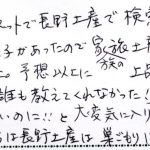 ネットで長野土産で検
子があったので家族土産
。予想以上に 家族の 上品
誰も教えてくれなかった!
いのに!!と大変気に入り
らは長野土産は巣ごもり